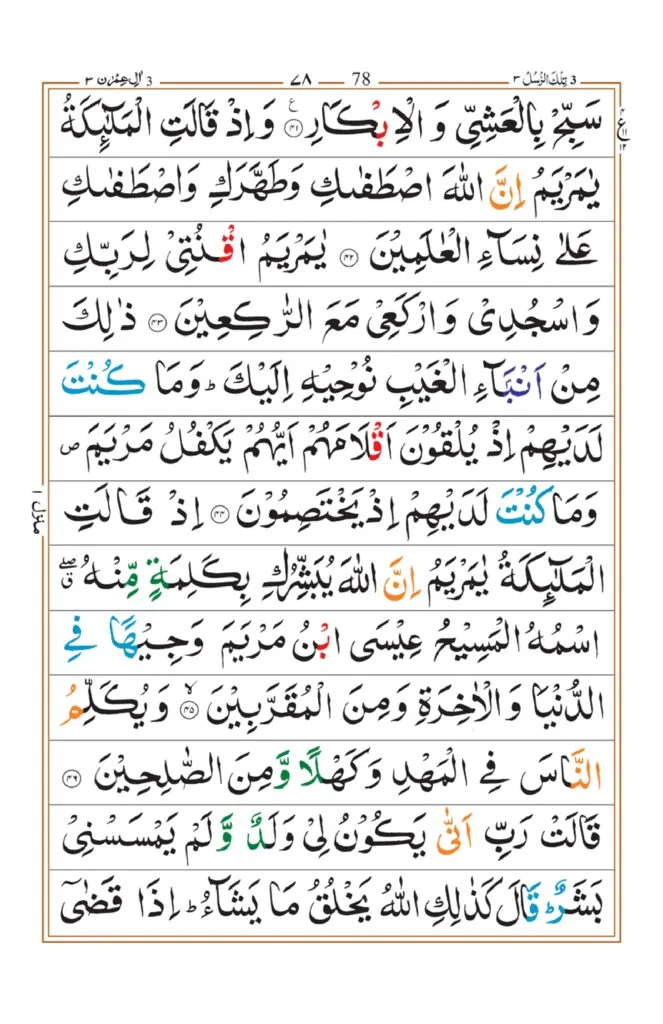 تِلْكَ الرُّسُلُ ٣ 3 78 ٧٨ اٰلِ عِمْرٰن ٣ 3
سَبِّحْ بِالْعَشِیِّ وَ الْاِبْكَارِ ﴿۴۱﴾ ع وَ اِذْ قَالَتِ الْمَلٰٓئِكَةُ
یٰمَرْیَمُ اِنَّ اللّٰهَ اصْطَفٰىكِ وَطَهَّرَكِ وَاصْطَفٰىكِ
عَلٰى نِسَآءِ الْعٰلَمِیْنَ ﴿۴۲﴾ یٰمَرْیَمُ اقْنُتِیْ لِرَبِّكِ
وَ اسْجُدِیْ وَ ارْكَعِیْ مَعَ الرّٰكِعِیْنَ ﴿۴۳﴾ ذٰلِكَ
مِنْ اَنْۢبَآءِ الْغَیْبِ نُوْحِیْهِ اِلَیْكَ ؕ وَ مَا كُنْتَ
لَدَیْهِمْ اِذْ یُلْقُوْنَ اَقْلَامَهُمْ اَیُّهُمْ یَكْفُلُ مَرْیَمَ ص
وَمَا كُنْتَ لَدَیْهِمْ اِذْ یَخْتَصِمُوْنَ ﴿۴۴﴾ اِذْ قَالَتِ
الْمَلٰٓئِكَةُ یٰمَرْیَمُ اِنَّ اللّٰهَ یُبَشِّرُكِ بِكَلِمَةٍ مِّنْهُ ۖق
اسْمُهُ الْمَسِیْحُ عِیْسَى ابْنُ مَرْیَمَ وَجِیْهًا فِی
الدُّنْیَا وَ الْاٰخِرَةِ وَمِنَ الْمُقَرَّبِیْنَ ۙ﴿۴۵﴾ وَ یُكَلِّمُ
النَّاسَ فِی الْمَهْدِ وَ كَهْلًا وَّ مِنَ الصّٰلِحِیْنَ ﴿۴۶﴾
قَالَتْ رَبِّ اَنّٰى یَكُوْنُ لِیْ وَلَدٌ وَّ لَمْ یَمْسَسْنِیْ
بَشَرٌ ؕ قَالَ كَذٰلِكِ اللّٰهُ یَخْلُقُ مَا یَشَآءُ ؕ اِذَا قَضٰۤى
منزل ۱